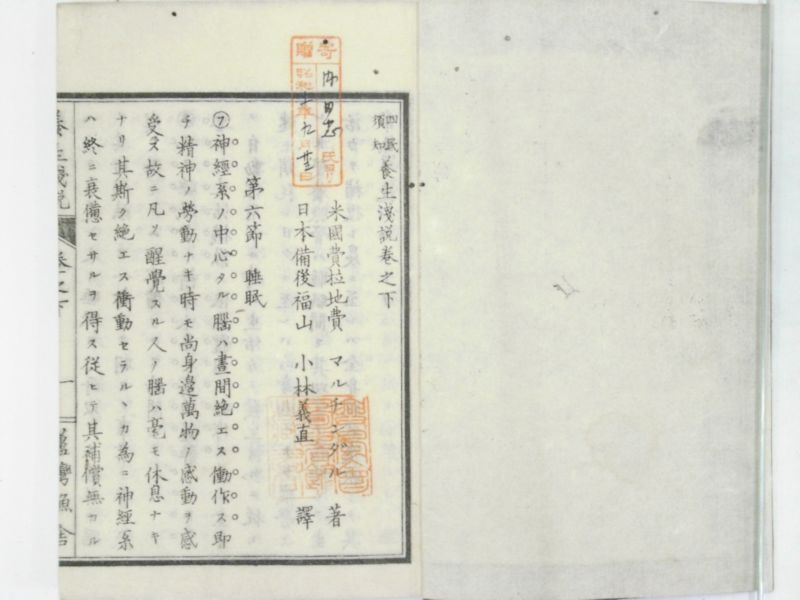 四民須知 養生淺説卷之下
米國費拉地費 マルチンダル 著
日本備後福山 小林義直 譯
第六節 睡眠
㋐神經系ノ中心タル腦ハ晝間絶エス働作ス即
チ精神ノ勞動ナキ時モ尚身邊萬物ノ感動ヲ感
受ス故ニ凡ソ醒覺スル人ノ腦ハ毫モ休息ナキ
ナリ其斯ク絶エス衝動セラルヽカ為ニ神經系
ハ終ニ衰憊セサルヲ得ス從ヒテ其補償無カル
養生淺説
卷之下
一
寄贈